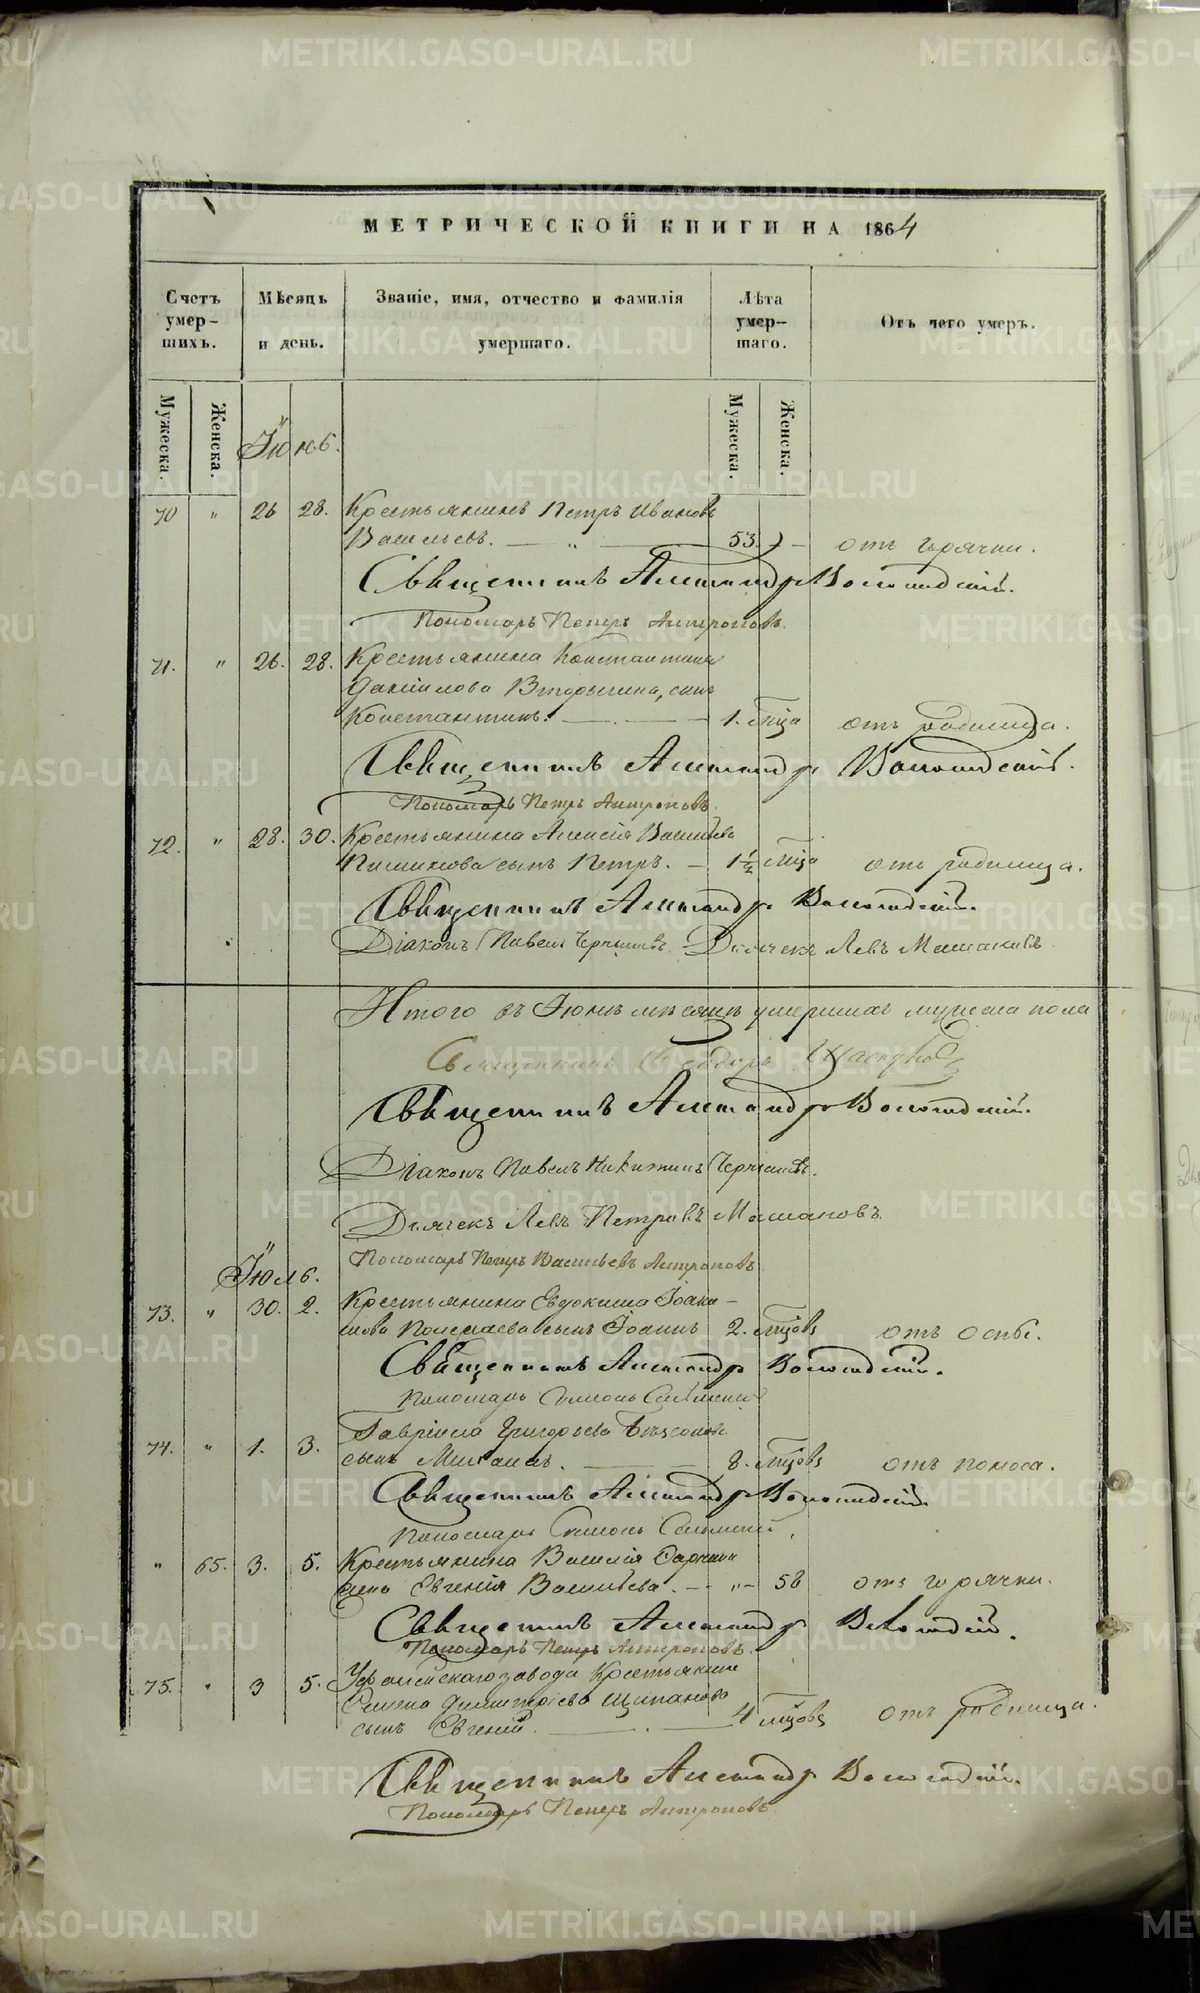 МЕТРИЧЕСКОЙ КНИГИ НА 1864
Счетъ умер-шихъ.
Мѣсяцъ и день.
Званіе, имя, отчество и фамилія умершаго.
Лѣта умер-шаго.
Отъ чего умеръ.
Мужеска.
Женска.
Мужеска.
Женска.
Іюнь.
70 " 26 28. Крестьянинъ Петръ Ивановъ
Васильевъ. — " — 53. — отъ горячки.
Священникъ Александръ Вологодскій.
Пономарь Петръ Антроповъ.
71. " 26. 28. Крестьянина Константина
Даніилова Вторыгина, сынъ
Константинъ. — 1. мѣсяца отъ родимца.
Священникъ Александръ Вологодскій.
Пономарь Петръ Антроповъ.
72. " 28. 30. Крестьянина Алексія Васильева
сынъ Петръ. — 1 1/2 мѣсяца отъ родимца.
Священникъ Александръ Вологодскій.
Діаконъ Павелъ Черниевъ. Дьячекъ Левъ Машановъ
Итого въ Іюнѣ мѣсяцѣ умершихъ мужеска пола
Священникъ Ѳеодоръ
Священникъ Александръ Вологодскій.
Діаконъ Павелъ Никитинъ
Дьячекъ Левъ Петровъ Машановъ.
Пономарь Петръ Васильевъ Антроповъ.
Іюль.
73. " 30. 2. Крестьянина Евдокима Іоанн-
нова сынъ Іоаннъ 2. мѣсяцовъ отъ оспы.
Священникъ Александръ Вологодскій.
Пономарь Симонъ
74. " 1. 3. Гавріила Григорьева
сынъ Михаилъ. — 8. мѣсяцовъ отъ поноса.
Священникъ Александръ Вологодскій
Пономарь Симонъ
" 65. 3. 5. Крестьянина Василія
жена Евгенія Васильева. — " — 58 отъ горячки.
Священникъ Александръ Вологодскій.
Пономарь Петръ Антроповъ.
75. " 3 5. Уфалейскаго завода Крестьянина
Димитріева Щипанова
сынъ Евгеній. — 4 мѣсяцовъ отъ родимца.
Священникъ Александръ Вологодскій.
Пономарь Петръ Антроповъ.
METRIKI.GASO-URAL.RU